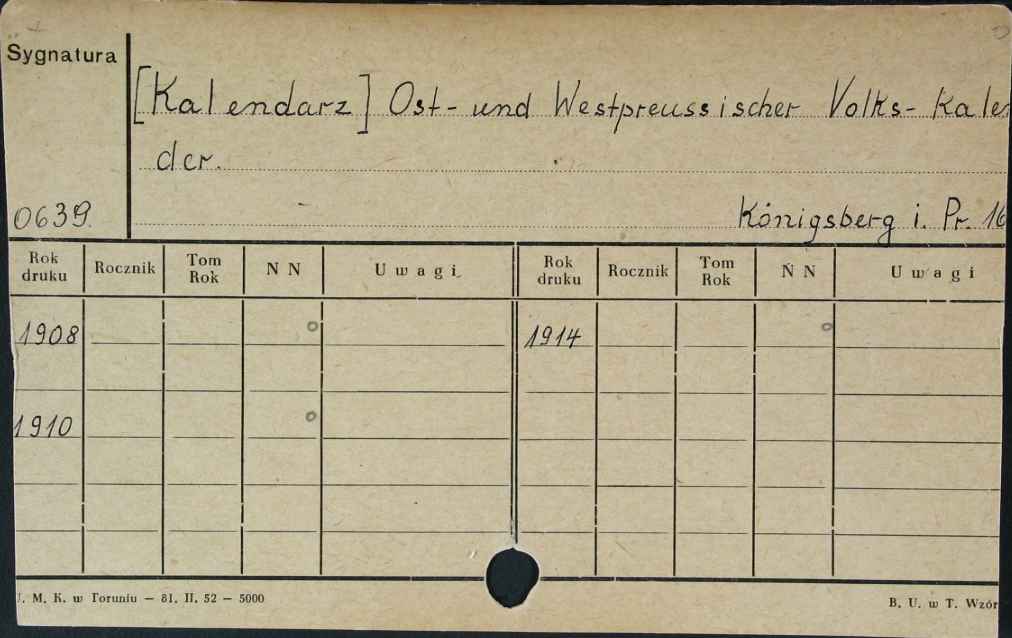 Sygnatura
[Kalendarz] Ost- und Westpreussischer Volks- Kalen
der.
0639.
Königsberg i. Pr. 16
Rok druku Rocznik Tom Rok N N Uwagi Rok druku Rocznik Tom Rok N N Uwagi
1908 o 1914 o
1910 o
U. M. K. w Toruniu — 81. II. 52 — 5000 B. U. w T. Wzór